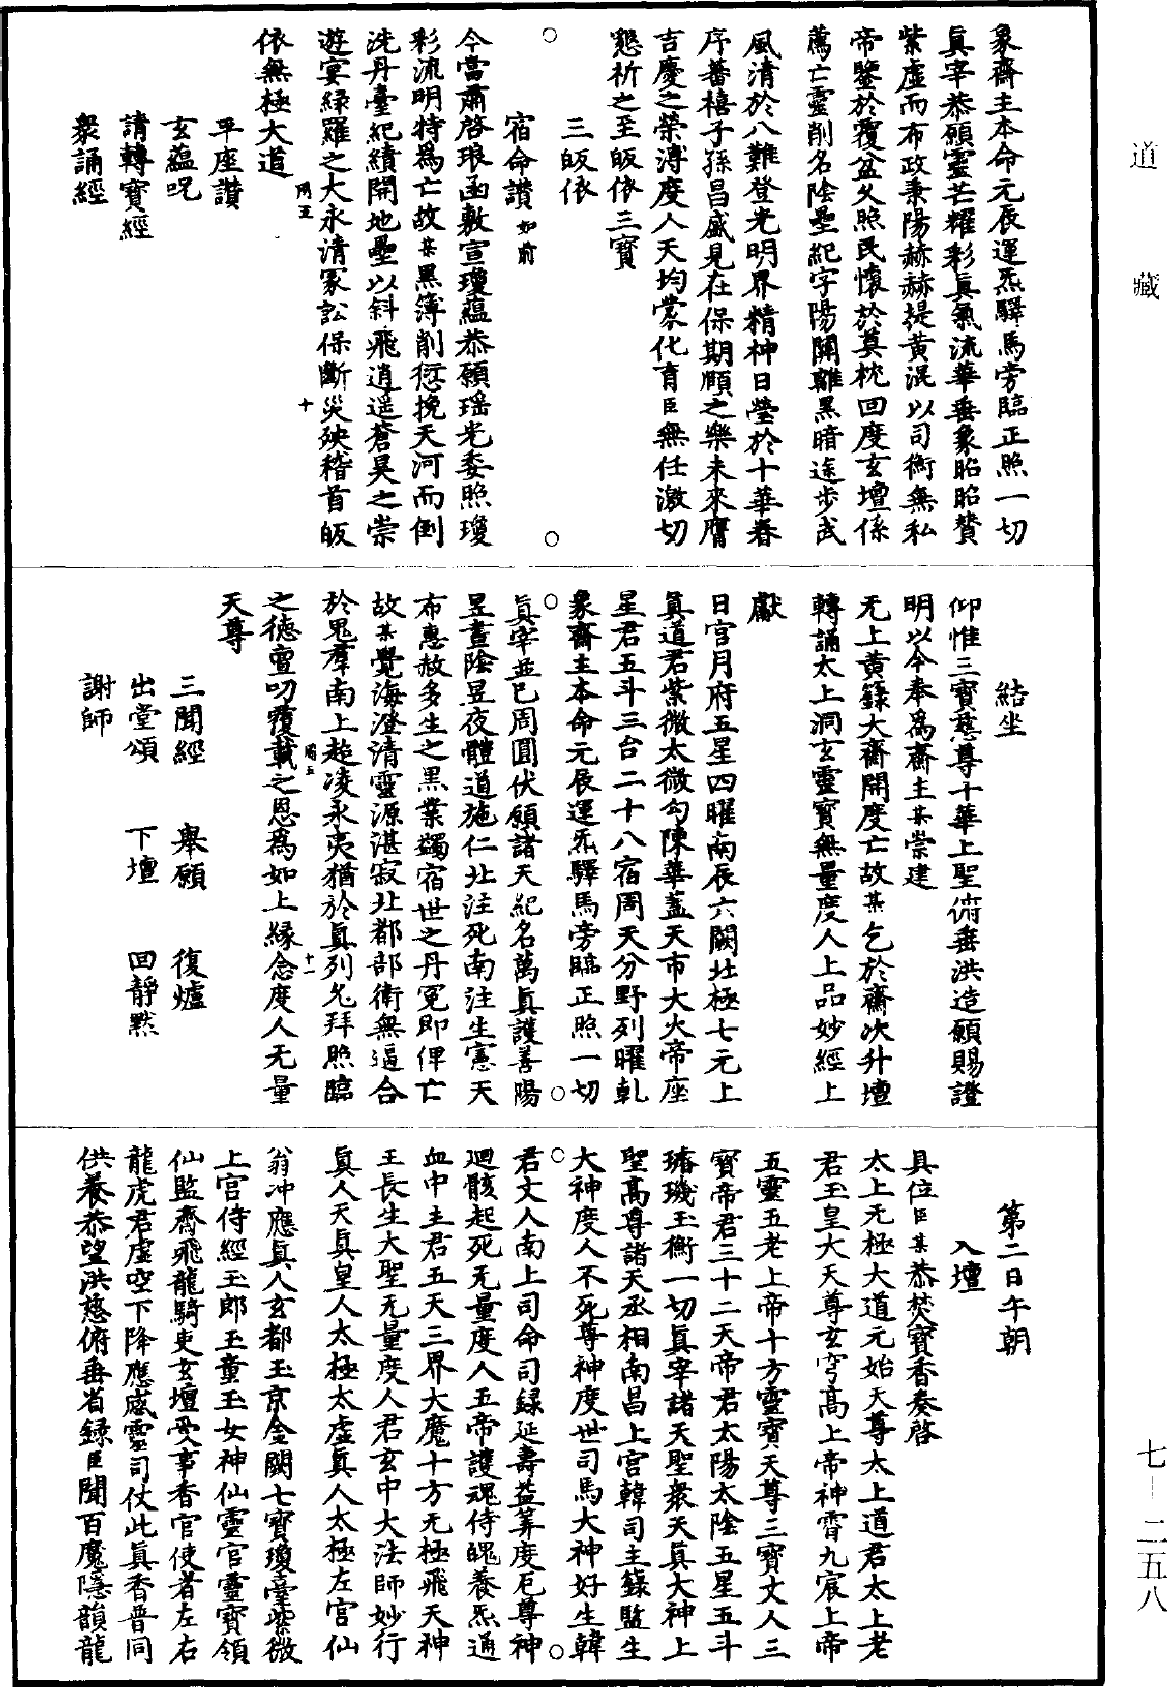 道藏
象齋主本命元辰運炁驛馬旁臨正照一切
眞宰恭願靈芒耀彩眞氣流華垂象昭昭贊
紫虛而布政秉陽赫赫提黃混以司衡無私
帝鑒於覆盆久照民懷於莫枕回度玄壇係
薦亡靈削名陰壘紀字陽關離黑暗途步武
風清於八難登光明界精神日瑩於十華春
序蕃禧子孫昌盛見在保期頤之樂未來膺
吉慶之榮溥度人天均蒙化育臣無任激切
懇祈之至皈依三寶
三皈依
宿命讚如前
今當肅啓琅函敷宣瓊蘊恭願瑶光委照瓊
彩流明特爲亡故某黑簿削愆挽天河而倒
洗丹臺紀績開地壘以斜飛逍遥蒼昊之崇
遊宴綠羅之大永清冢訟保斷災殃稽首皈
依無極大道
平座讚
玄蘊呪
請轉寶經
衆誦經
結坐
仰惟三寶慈尊十華上聖俯垂洪造願賜證
明以今奉爲齋主某崇建
无上黃籙大齋開度亡故某乞於齋次升壇
轉誦太上洞玄靈寶無量度人上品妙經上
獻
日宮月府五星四曜南辰六闕北極七元上
眞道君紫微太微勾陳華蓋天市大火帝座
星君五斗三台二十八宿周天分野列曜乹
象齋主本命元辰運炁驛馬旁臨正照一切
眞宰並已周圓伏願諸天紀名萬眞護善陽
昱晝陰昱夜體道施仁北注死南注生憲天
布惠赦多生之黑業蠲宿世之丹冤即俾亡
故某覺海澄清靈源湛寂北都部衛無遏合
於鬼羣南上超凌永夷猶於眞列允拜照臨
之德亶叨覆載之恩爲如上緣念度人无量
天尊
三聞經 舉願 復爐
出堂頌 下壇 回靜黙
謝師
第二日午朝
入壇
具位臣某恭焚寶香奏啓
太上无極大道元始天尊太上道君太上老
君玉皇大天尊玄穹高上帝神霄九宸上帝
五靈五老上帝十方靈寶天尊三寶丈人三
寶帝君三十二天帝君太陽太陰五星五斗
璿璣玉衡一切眞宰諸天聖衆天眞大神上
聖高尊諸天丞相南昌上宮韓司主籙監生
大神度人不死尊神度世司馬大神好生韓
君丈人南上司命司録延壽益筭度厄尊神
廻骸起死无量度人五帝護魂侍魄養炁通
血中主君五天三界大魔十方无極飛天神
王長生大聖无量度人君玄中大法師妙行
眞人天眞皇人太極太虛眞人太極左宮仙
翁冲應眞人玄都玉京金闕七寶瓊臺紫微
上宮侍經玉郎玉童玉女神仙靈官靈寶領
仙監齋飛龍騎吏玄壇受事香官使者左右
龍虎君虛空下降應感靈司仗此眞香普同
供養恭望洪慈俯垂省録臣聞百魔隱韻龍
七—二五八